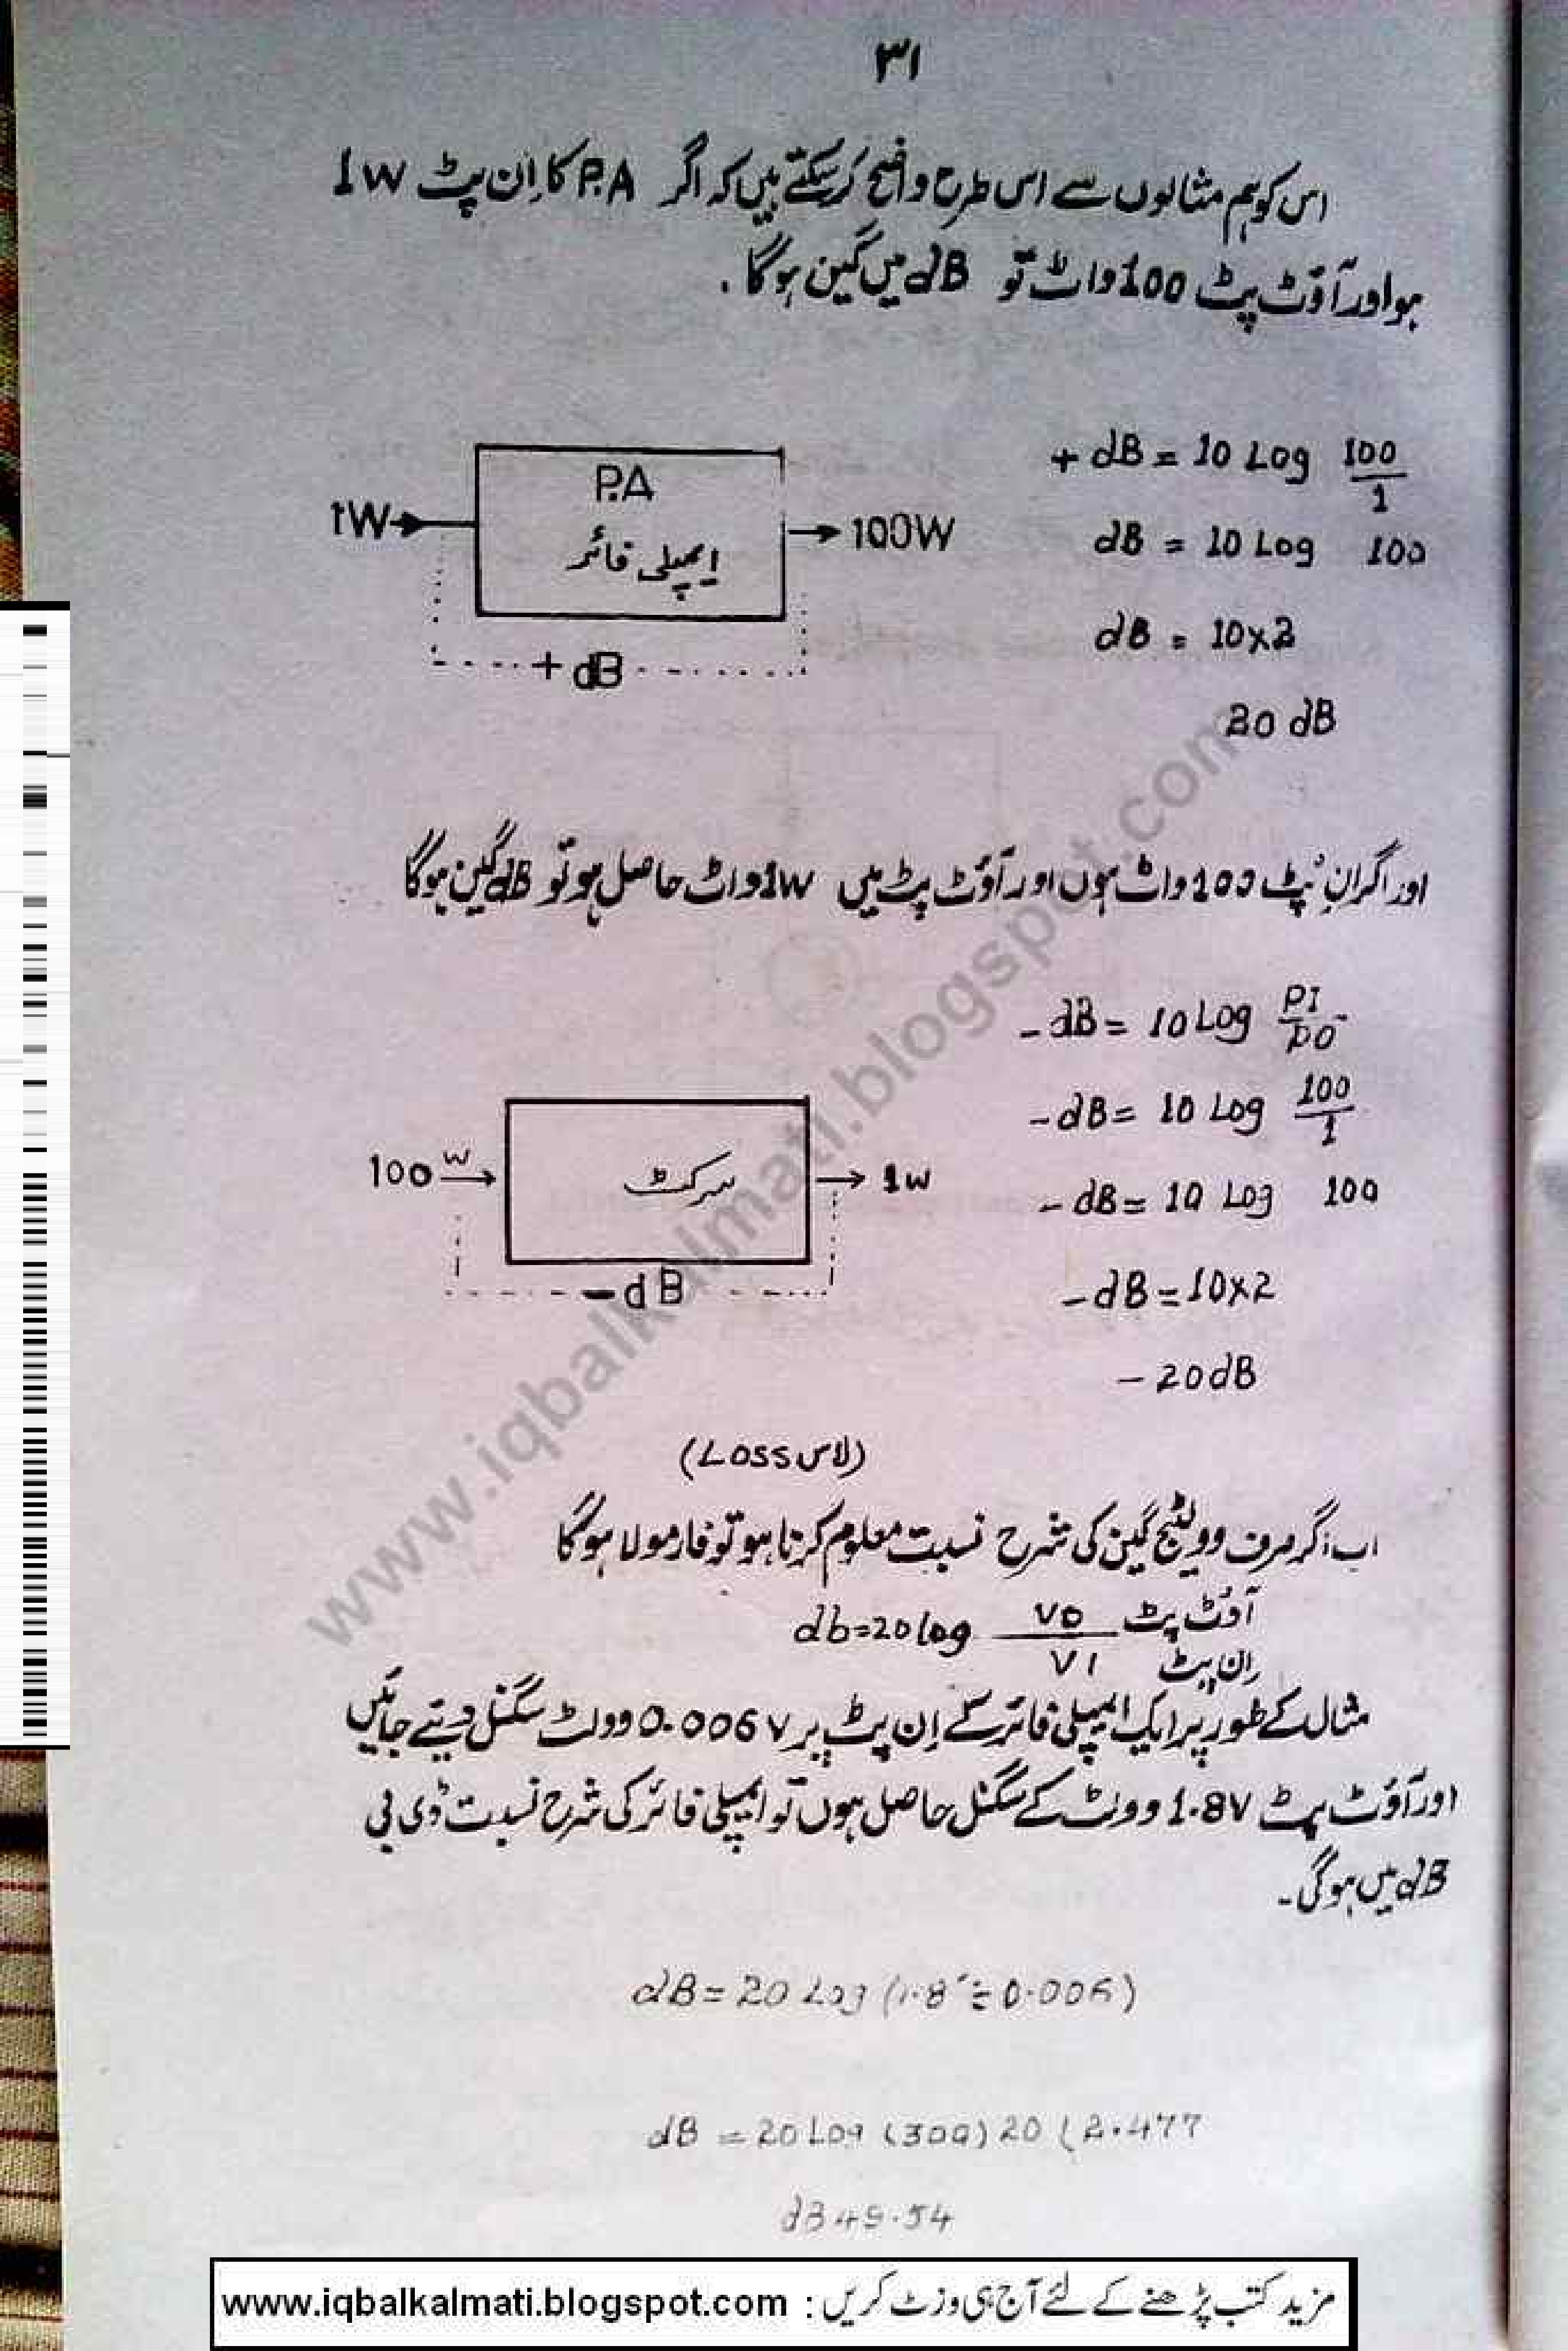 ۳۱
اس کو ہم مثالوں سے اس طرح واضح کر سکتے ہیں کہ اگر P.A کا اِن پٹ 1W
ہو اور آؤٹ پٹ 100 واٹ تو dB میں گین ہو گا .
+ dB = 10 Log 100/1
P.A
ایمپلی فائر
1W
100W
+ dB
dB = 10 Log 100
dB = 10x2
20 dB
اور اگر اِن پُٹ 100 واٹ ہوں اور آؤٹ پٹ میں 1W واٹ حاصل ہو تو dB گین ہو گا
- dB = 10 Log PI/PO
- dB = 10 Log 100/1
100 W
سرکٹ
1W
- dB
- dB = 10 Log 100
- dB = 10x2
- 20dB
(لاس Loss)
اب اگر صرف وولٹیج گین کی شرح نسبت معلوم کرنا ہو تو فارمولا ہو گا
db=20log VO/VI آؤٹ پٹ
اِن پٹ
مثال کے طور پر ایک ایمپلی فائر کے اِن پٹ پر 0.006V وولٹ سگنل دیتے جائیں
اور آؤٹ پٹ 1.8V وولٹ کے سگنل حاصل ہوں تو ایمپلی فائر کی شرح نسبت ڈی بی
dB میں ہو گی۔
dB = 20 Log (1.8 ÷ 0.006)
dB = 20 Log (300) 20 (2.477
dB 49.54
مزید کتب پڑھنے کے لئے آج ہی وزٹ کریں : www.iqbalkalmati.blogspot.com
www.iqbalkalmati.blogspot.com